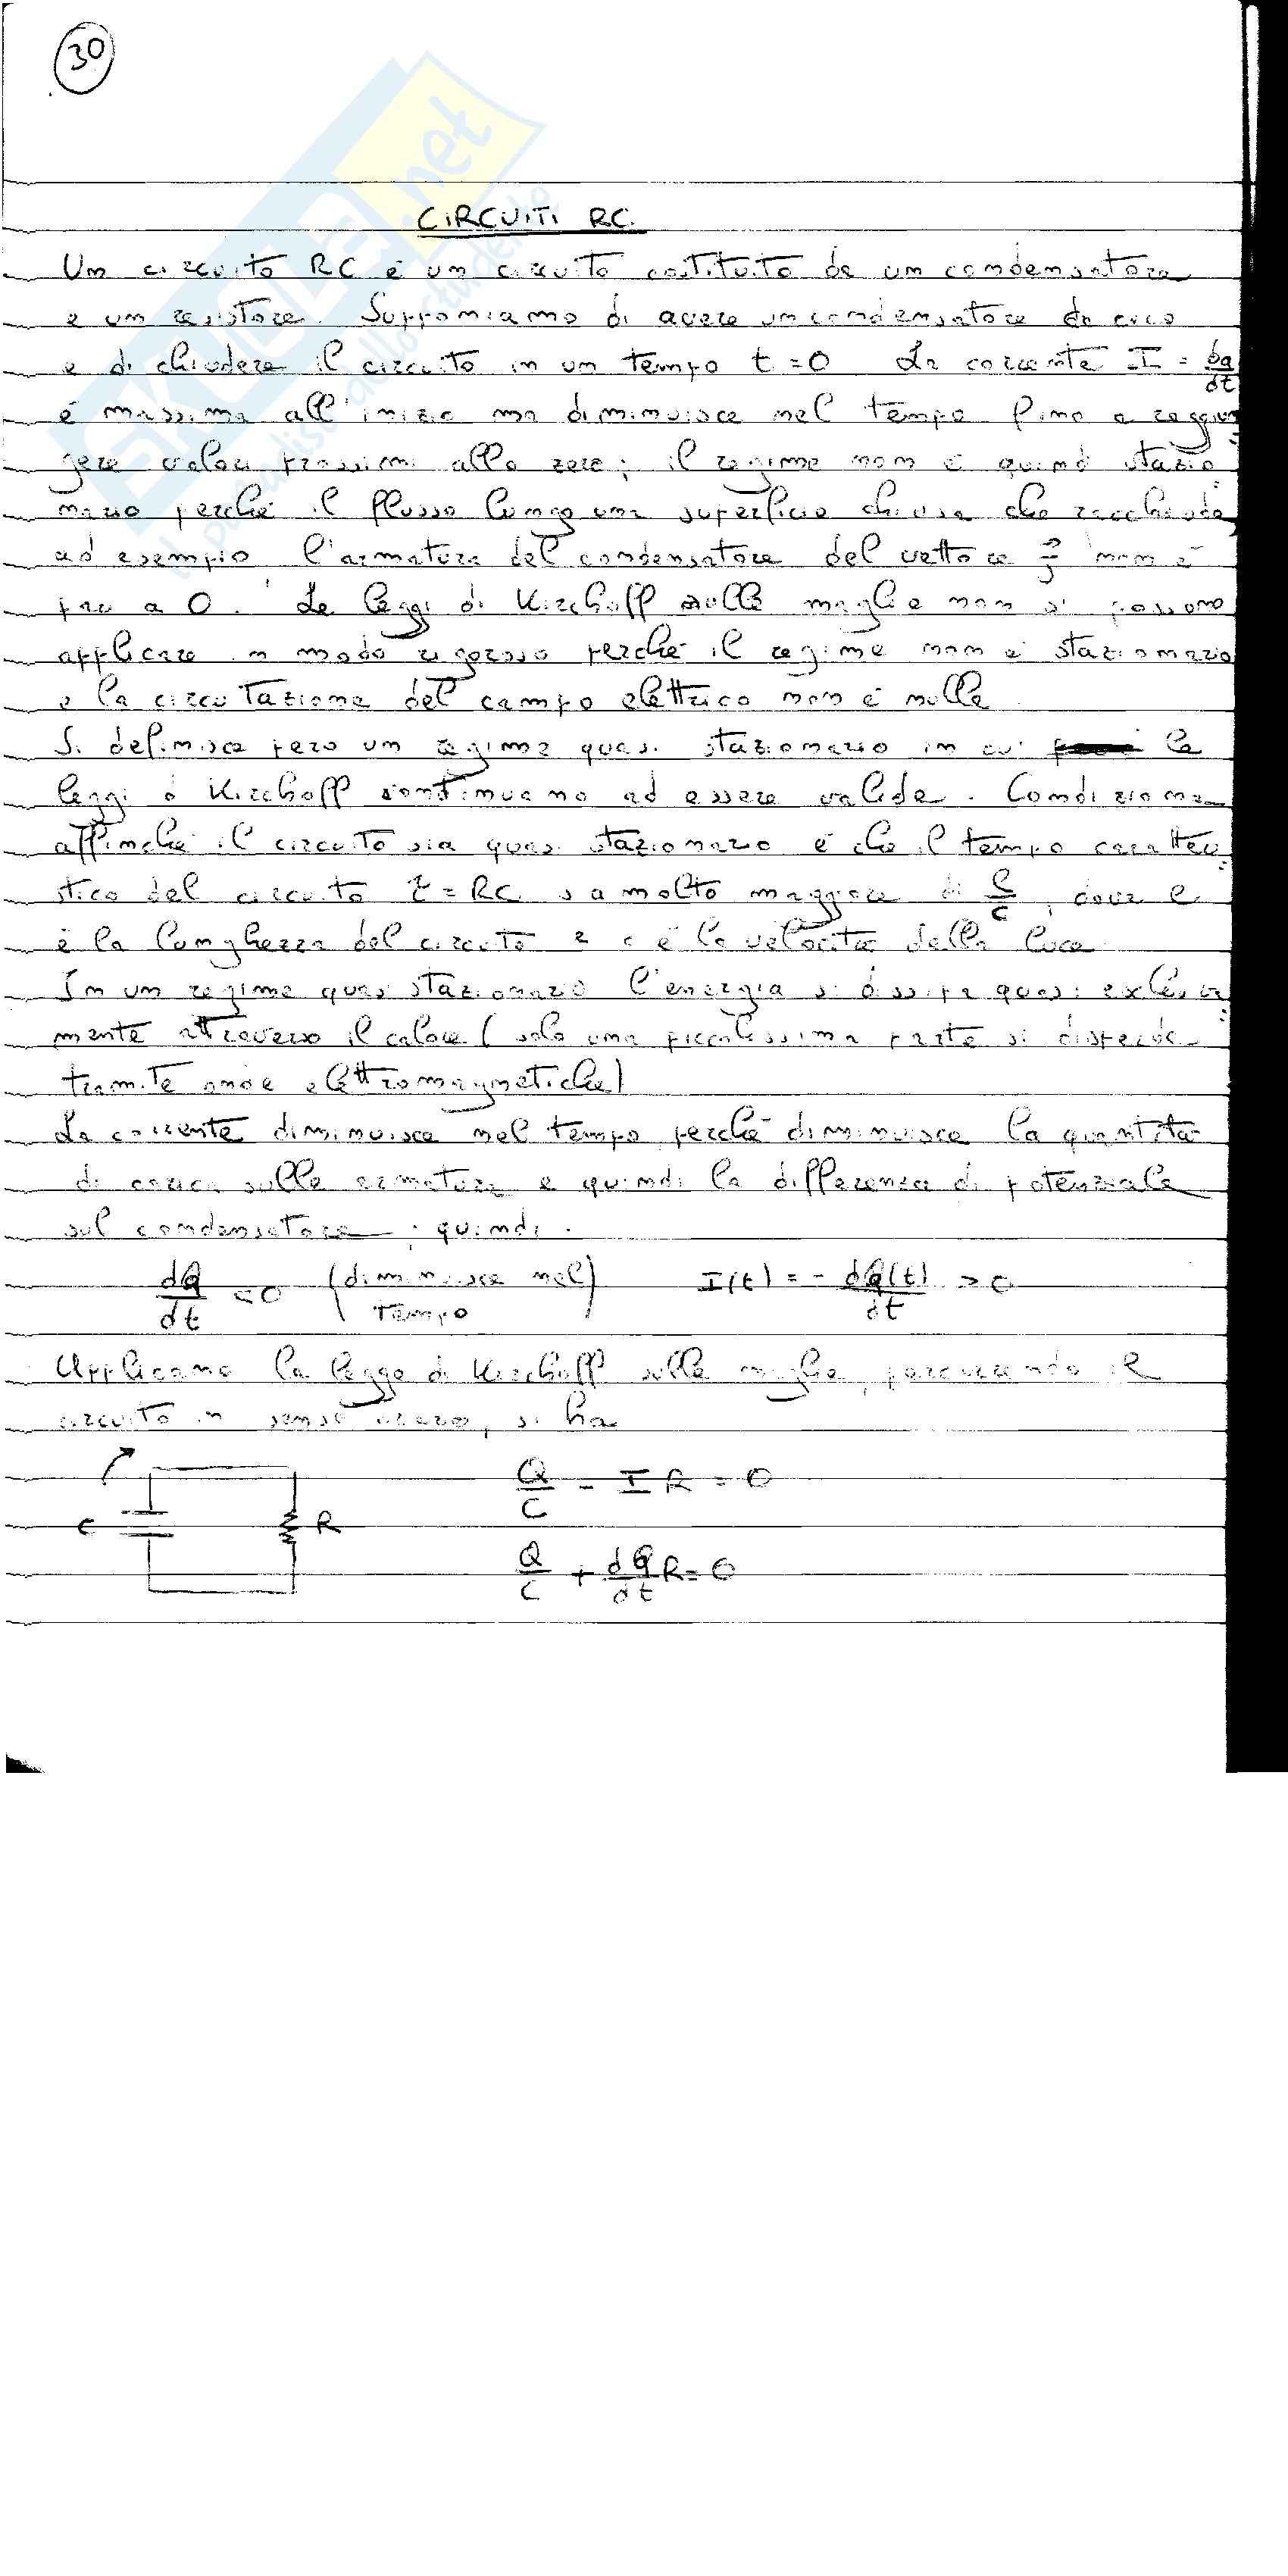 30
SKUOLA.net
il paradiso dello studente
CIRCUITI RC.
Un circuito RC è un circuito costituito da un condensatore
e un resistore. Supponiamo di avere un condensatore
e di chiudere il circuito in un tempo t=0 La corrente I = dq/dt
è massima all'inizio ma diminuisce nel tempo fino a raggiun
gere valori prossimi allo zero; il regime non è quindi stazio
nario perché il flusso lungo una superficie chiusa che racchiude
ad esempio l'armatura del condensatore del vettore J non è
pari a 0. Le leggi di Kirchoff sulle maglie non si possono
applicare in modo rigoroso perché il regime non è stazionario
e la circuitazione del campo elettrico non è nulla
Si definisce però un regime quasi stazionario in cui le
leggi di Kirchoff continuano ad essere valide. Condizione
affinché il circuito sia quasi stazionario è che il tempo caratteri
stico del circuito τ = RC sia molto maggiore di l/c, dove l
è la lunghezza del circuito e c è la velocità della luce
In un regime quasi stazionario l'energia si dissipa quasi
mente attraverso il calore (solo una piccolissima parte si disperde
tramite onde elettromagnetiche)
La corrente diminuisce nel tempo perché diminuisce la quantità
di carica sulle armature e quindi la differenza di potenziale
sul condensatore, quindi.
dQ/dt <0 (diminuisce nel tempo) I(t) = - dQ(t)/dt >0
Applicano la legge di Kirchoff sulle maglie, percorrendo il
circuito in senso orario, si ha
Q/C - IR = 0
C R
Q/C + dQ/dt R = 0